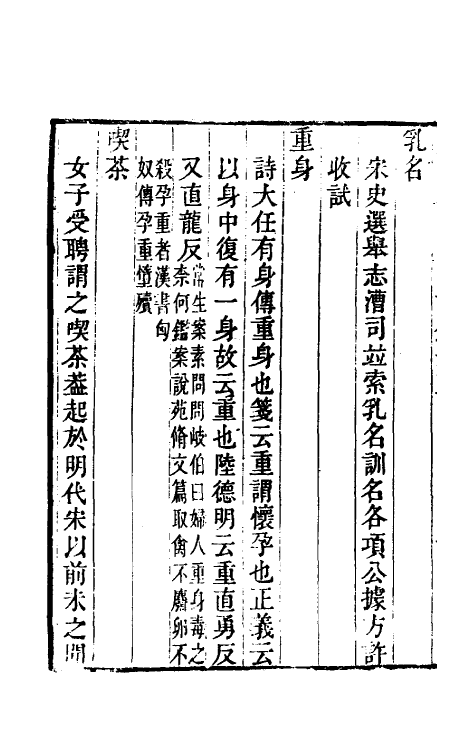 乳名
宋史選舉志漕司並索乳名訓名各項公據方許
收試
重身
詩大任有身傳重身也箋云重謂懷孕也正義云
以身中復有一身故云重也陸德明云重直勇反
又直龍反常生案素問問岐伯曰婦人重身毒之
柰何鑑案說苑脩文篇取禽不麛卵不
殺孕重者漢書匈
奴傳孕重憧殰
喫茶
女子受聘謂之喫茶葢起於明代宋以前未之聞